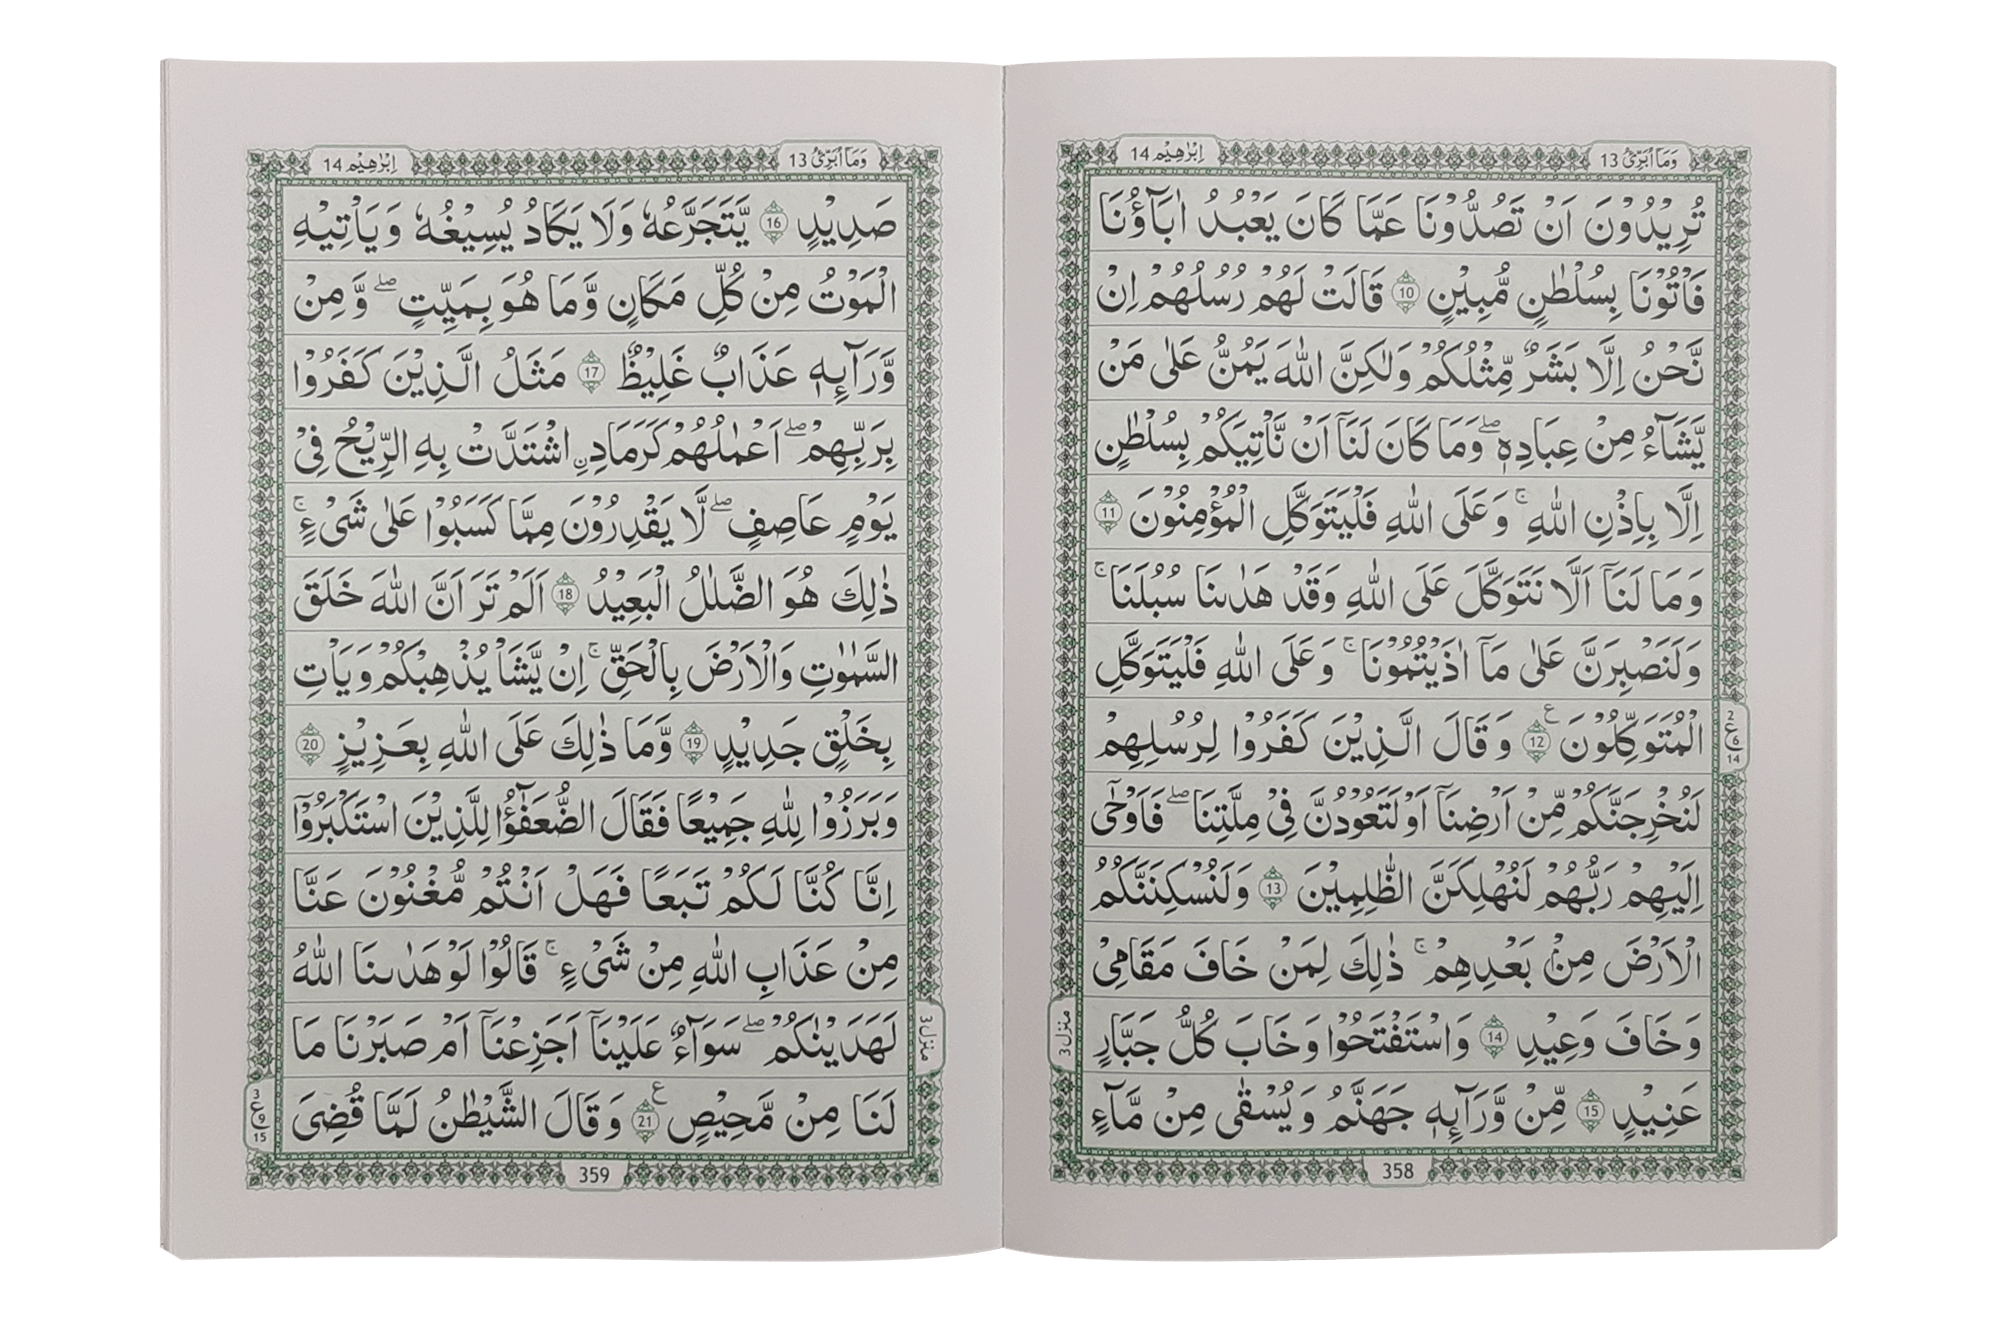 وَمَا اُبَرِّئُ 13
اِبْرٰهِيْم 14
تُرِيْدُوْنَ اَنْ تَصُدُّوْنَا عَمَّا كَانَ يَعْبُدُ اٰبَآؤُنَا
فَاْتُوْنَا بِسُلْطٰنٍ مُّبِيْنٍ 10 قَالَتْ لَهُمْ رُسُلُهُمْ اِنْ
نَّحْنُ اِلَّا بَشَرٌ مِّثْلُكُمْ وَلٰكِنَّ اللّٰهَ يَمُنُّ عَلٰى مَنْ
يَّشَآءُ مِنْ عِبَادِهٖ ۖ وَمَا كَانَ لَنَآ اَنْ نَّاْتِيَكُمْ بِسُلْطٰنٍ
اِلَّا بِاِذْنِ اللّٰهِ ۚ وَعَلَى اللّٰهِ فَلْيَتَوَكَّلِ الْمُؤْمِنُوْنَ 11
وَمَا لَنَآ اَلَّا نَتَوَكَّلَ عَلَى اللّٰهِ وَقَدْ هَدٰىنَا سُبُلَنَا ۚ
وَلَنَصْبِرَنَّ عَلٰى مَآ اٰذَيْتُمُوْنَا ۚ وَعَلَى اللّٰهِ فَلْيَتَوَكَّلِ
الْمُتَوَكِّلُوْنَ 12 ع وَقَالَ الَّذِيْنَ كَفَرُوْا لِرُسُلِهِمْ
لَنُخْرِجَنَّكُمْ مِّنْ اَرْضِنَآ اَوْ لَتَعُوْدُنَّ فِيْ مِلَّتِنَا ۖ فَاَوْحٰٓى
اِلَيْهِمْ رَبُّهُمْ لَنُهْلِكَنَّ الظّٰلِمِيْنَ 13 وَلَنُسْكِنَنَّكُمُ
الْاَرْضَ مِنْۢ بَعْدِهِمْ ۚ ذٰلِكَ لِمَنْ خَافَ مَقَامِيْ
وَخَافَ وَعِيْدِ 14 وَاسْتَفْتَحُوْا وَخَابَ كُلُّ جَبَّارٍ
عَنِيْدٍ 15 مِّنْ وَّرَآئِهٖ جَهَنَّمُ وَيُسْقٰى مِنْ مَّآءٍ
2
ع
6
14
منزل 3
358
وَمَا اُبَرِّئُ 13
اِبْرٰهِيْم 14
صَدِيْدٍ 16 يَّتَجَرَّعُهٗ وَلَا يَكَادُ يُسِيْغُهٗ وَيَاْتِيْهِ
الْمَوْتُ مِنْ كُلِّ مَكَانٍ وَّمَا هُوَ بِمَيِّتٍ ۖ وَّمِنْ
وَّرَآئِهٖ عَذَابٌ غَلِيْظٌ 17 مَثَلُ الَّذِيْنَ كَفَرُوْا
بِرَبِّهِمْ ۖ اَعْمٰلُهُمْ كَرَمَادِنِ اشْتَدَّتْ بِهِ الرِّيْحُ فِيْ
يَوْمٍ عَاصِفٍ ۖ لَّا يَقْدِرُوْنَ مِمَّا كَسَبُوْا عَلٰى شَيْءٍ ۚ
ذٰلِكَ هُوَ الضَّلٰلُ الْبَعِيْدُ 18 اَلَمْ تَرَ اَنَّ اللّٰهَ خَلَقَ
السَّمٰوٰتِ وَالْاَرْضَ بِالْحَقِّ ۚ اِنْ يَّشَاْ يُذْهِبْكُمْ وَيَاْتِ
بِخَلْقٍ جَدِيْدٍ 19 وَّمَا ذٰلِكَ عَلَى اللّٰهِ بِعَزِيْزٍ 20
وَبَرَزُوْا لِلّٰهِ جَمِيْعًا فَقَالَ الضُّعَفٰٓؤُا لِلَّذِيْنَ اسْتَكْبَرُوْٓا
اِنَّا كُنَّا لَكُمْ تَبَعًا فَهَلْ اَنْتُمْ مُّغْنُوْنَ عَنَّا
مِنْ عَذَابِ اللّٰهِ مِنْ شَيْءٍ ۚ قَالُوْا لَوْ هَدٰىنَا اللّٰهُ
لَهَدَيْنٰكُمْ ۖ سَوَآءٌ عَلَيْنَآ اَجَزِعْنَآ اَمْ صَبَرْنَا مَا
لَنَا مِنْ مَّحِيْصٍ 21 ع وَقَالَ الشَّيْطٰنُ لَمَّا قُضِيَ
منزل 3
3
ع
9
15
359